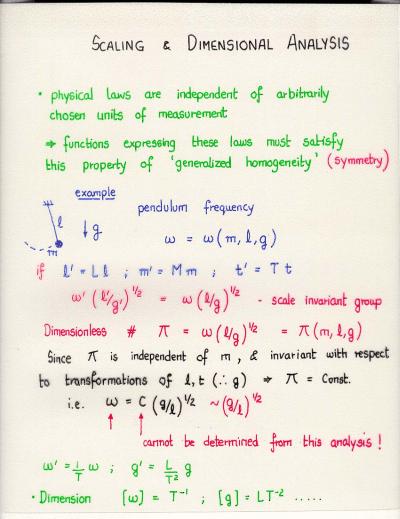 SCALING & DIMENSIONAL ANALYSIS
• physical laws are independent of arbitrarily
chosen units of measurement
⇒ functions expressing these laws must satisfy
this property of 'generalized homogeneity' (symmetry)
example
pendulum frequency
l
↓ g
m
ω = ω(m, l, g)
if l' = L l ; m' = M m ; t' = T t
ω' (l'/g')^1/2 = ω (l/g)^1/2 - scale invariant group
Dimensionless # π = ω(l/g)^1/2 = π(m, l, g)
Since π is independent of m, & invariant with respect
to transformations of l, t (∴ g) ⇒ π = Const.
i.e. ω = C (g/l)^1/2 ~ (g/l)^1/2
cannot be determined from this analysis !
ω' = 1/T ω ; g' = L/T² g
• Dimension [ω] = T⁻¹ ; [g] = LT⁻² .....